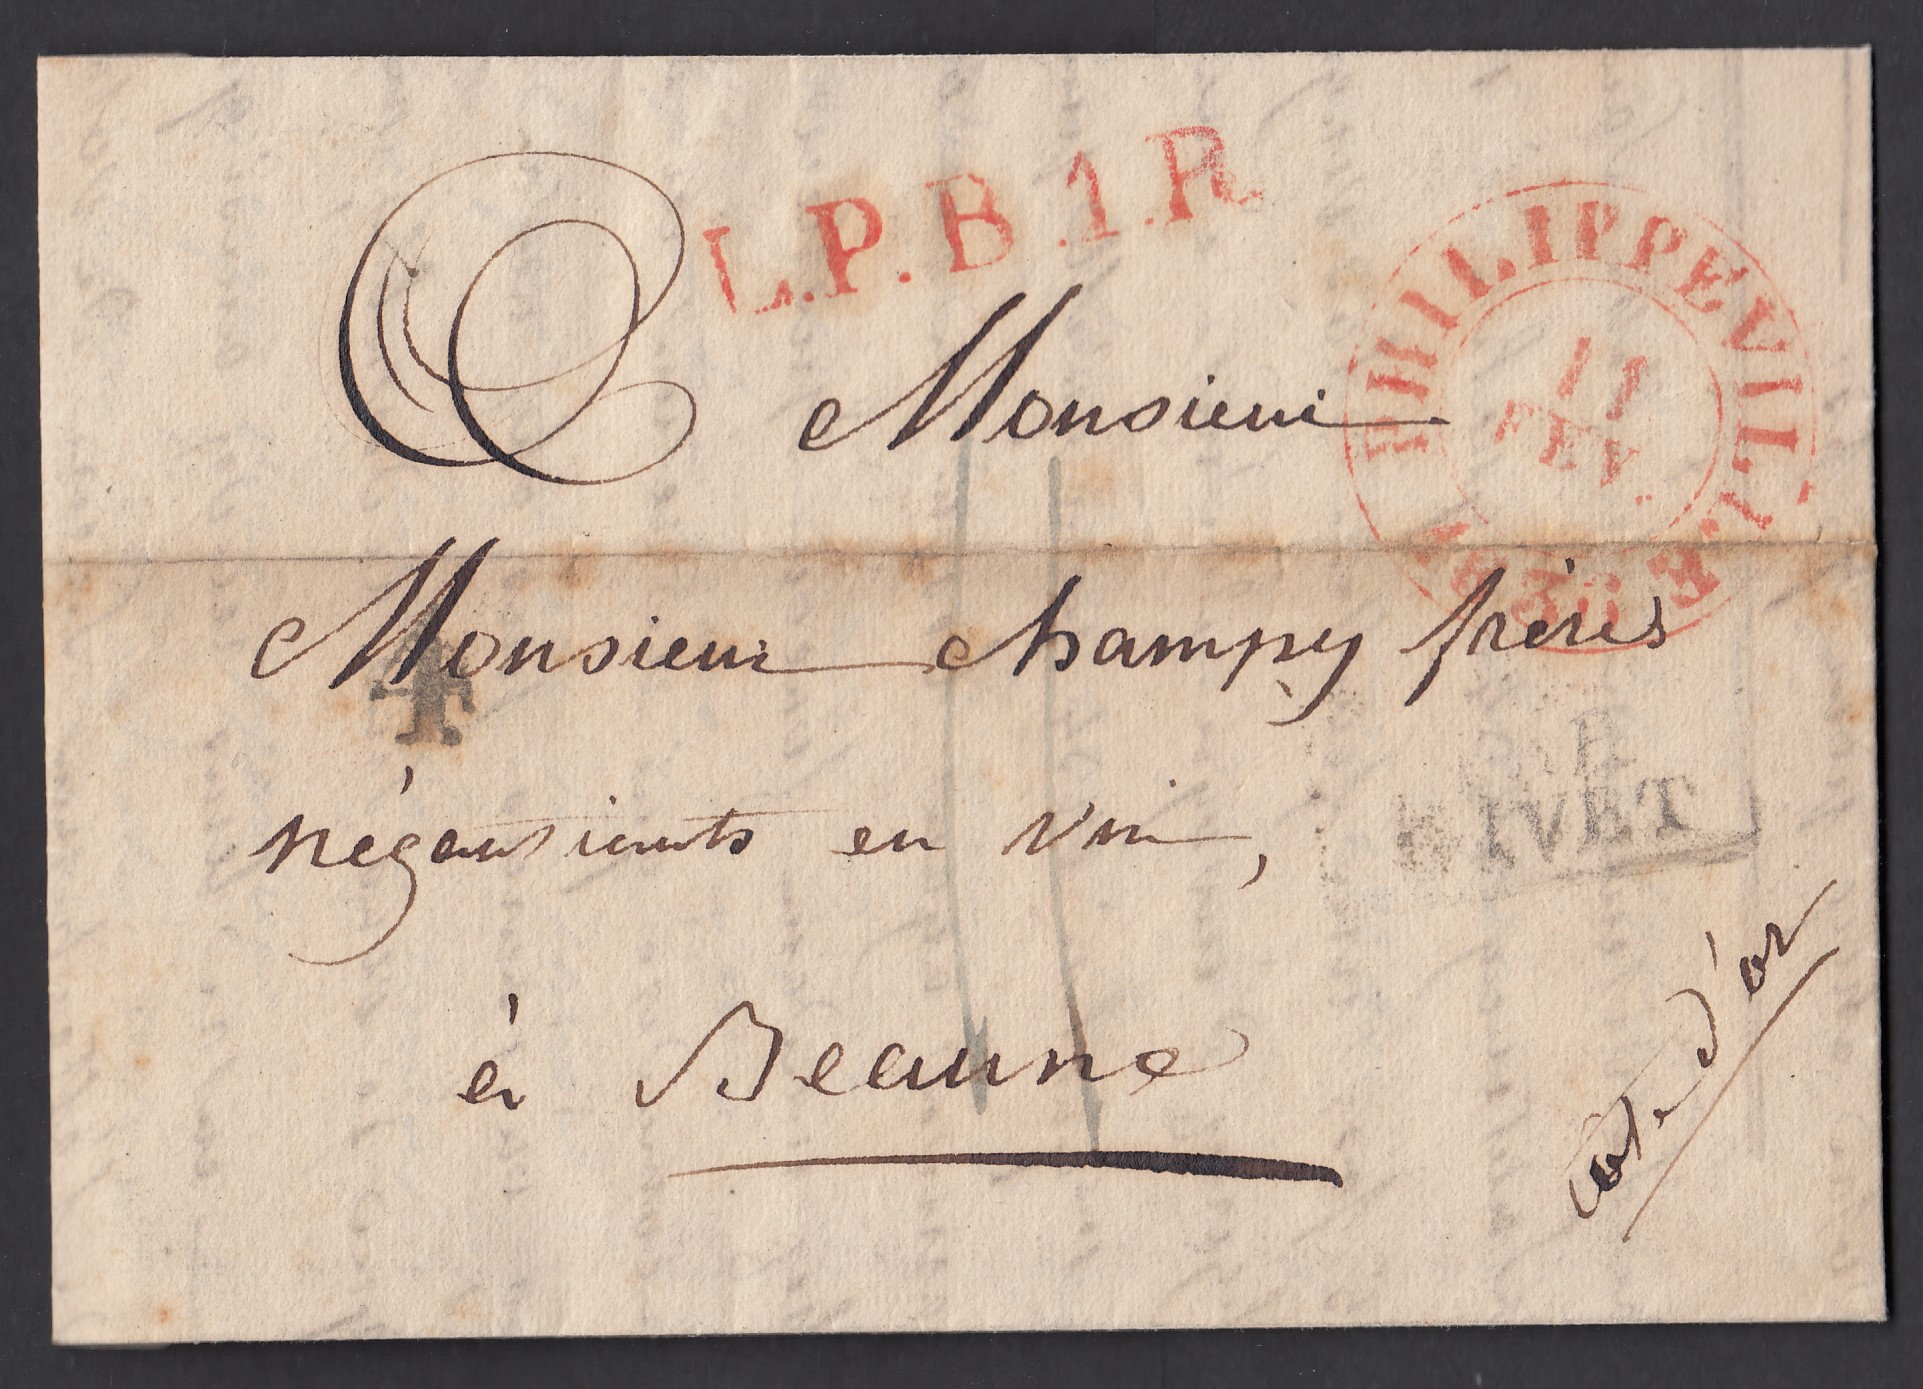 L.P.B.1.R
PHILIPPEVILLE
11
FEV.
Monsieur
Monsieur Champy frères
4
négousients en vin,
GIVET
à Beaune
Côte d'or